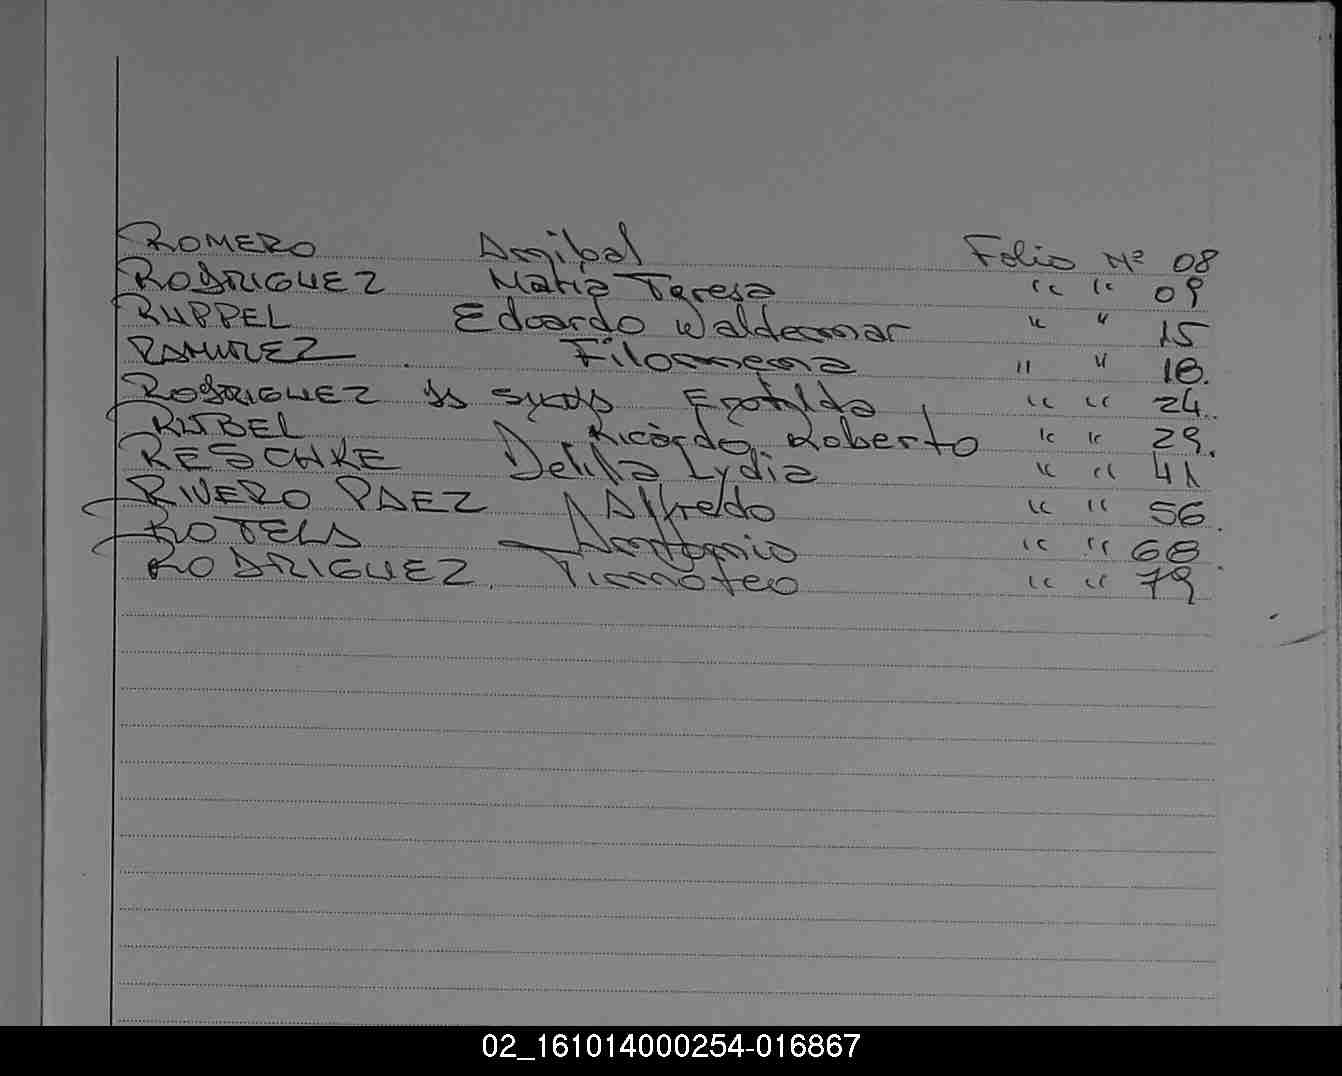 ROMERO Anibal Folio Nº 08
RODRIGUEZ Maria Teresa " " 09
RUPPEL Edoardo Waldemar " " 15
RAMIREZ Filomena " " 18.
RODRIGUEZ 24.
RUBEL Ricardo Roberto " " 29.
RESCHKE Delila Lydia " " 41
RIVERO PAEZ Alfredo " " 56.
ROTELA Antonio " " 68.
RODRIGUEZ. Timoteo " " 79
02_161014000254-016867